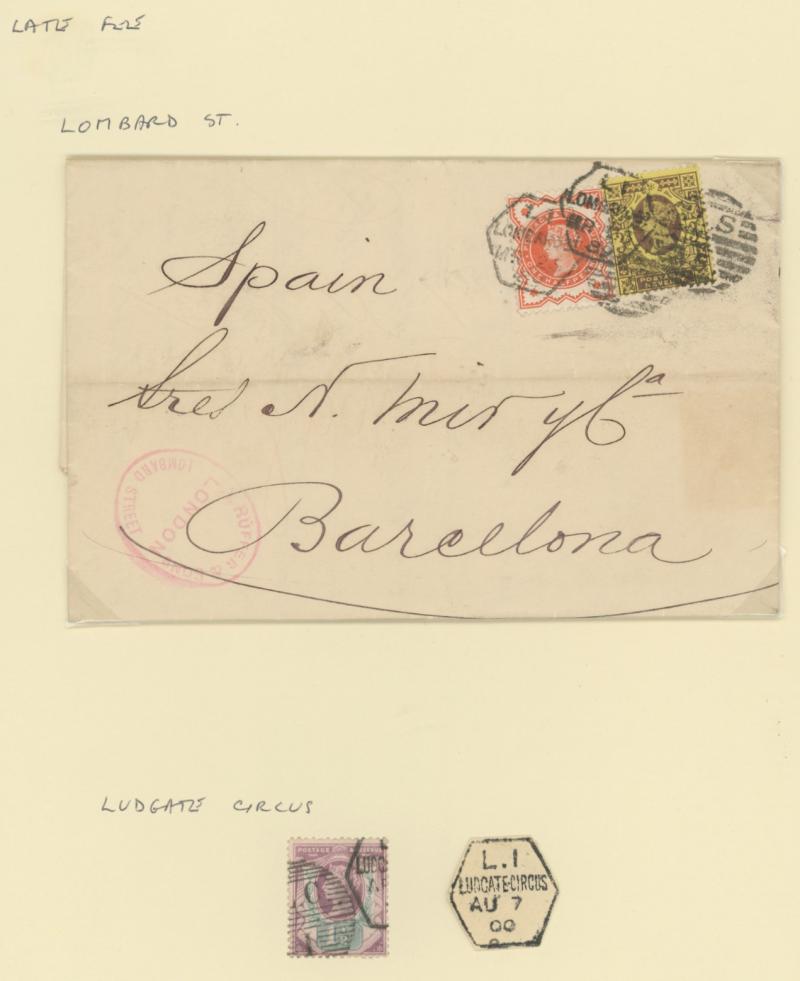 LATE FEE
LOMBARD ST.
L
LOMBARD
Spain
S.
Sres N. Mir y Cª
Barcelona
RÜFFER &
LONDON
LOMBARD STREET
LUDGATE CIRCUS
POSTAGE
L.1
LUDGATE-CIRCUS
AU 7
00